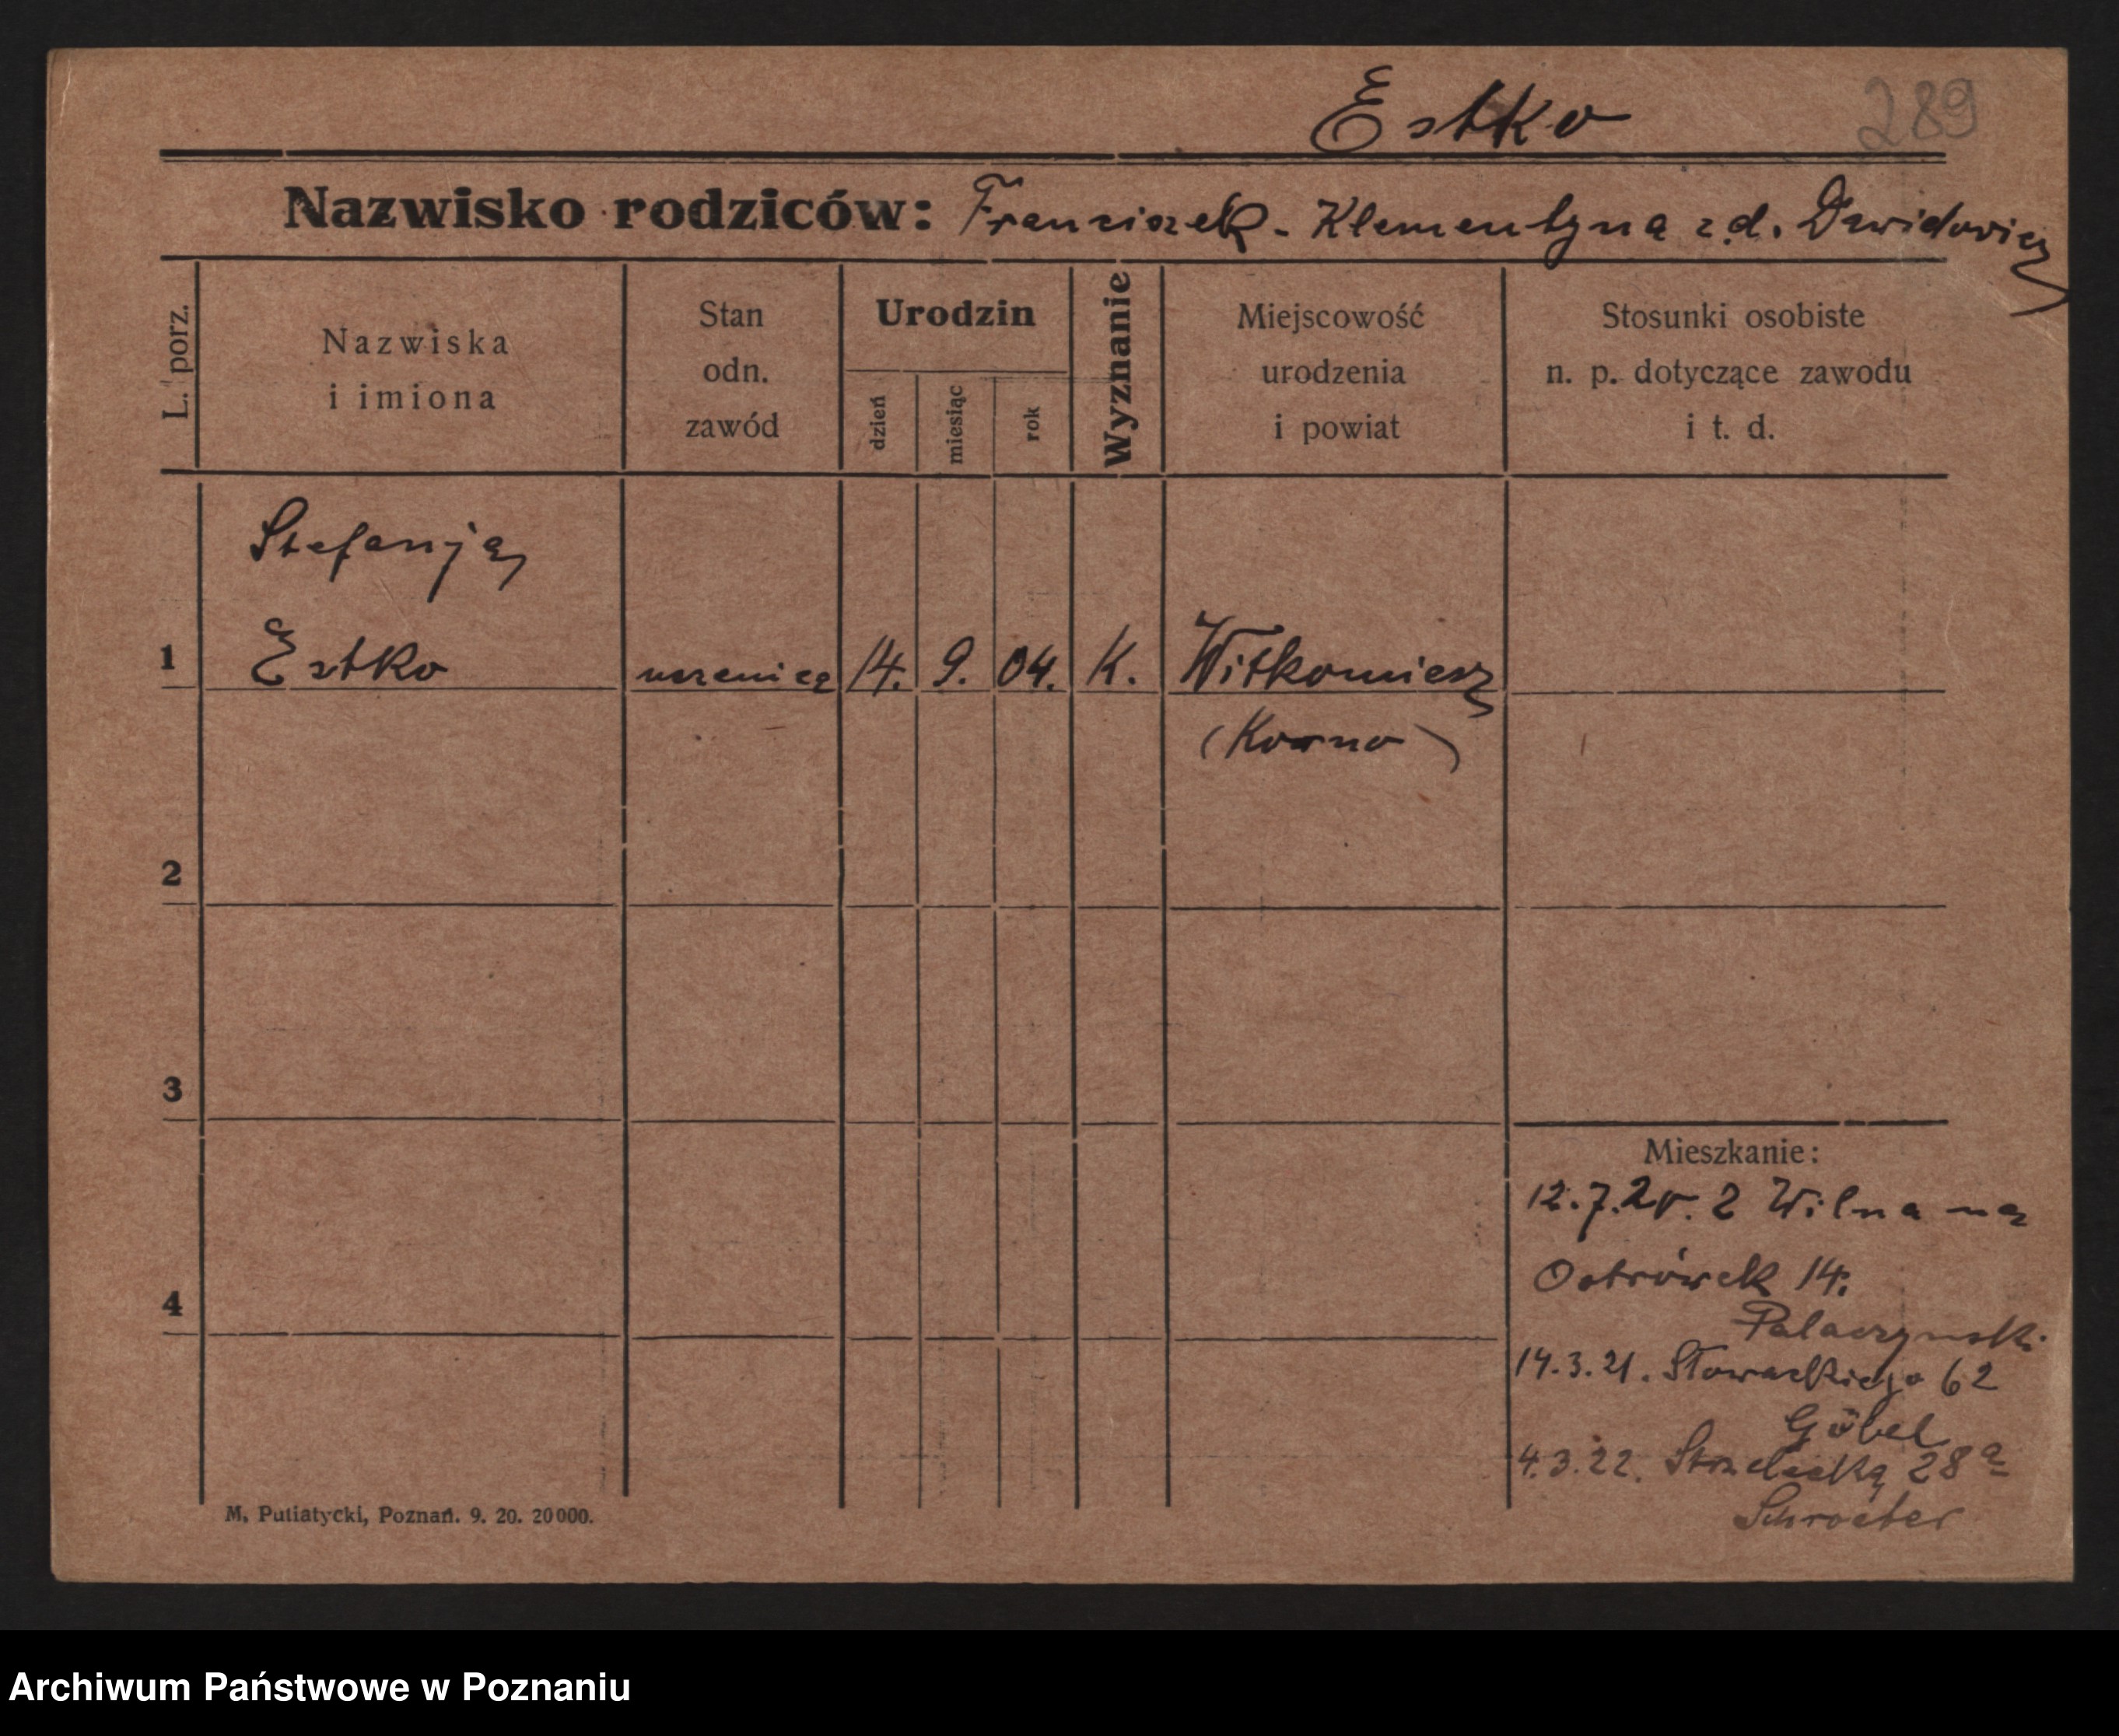 Estko
289
Nazwisko rodziców: Franciszek - Klementyna z d. Dawidowicz
L. porz.
Nazwiska
i imiona
Stan
odn.
zawód
Urodzin
dzień
miesiąc
rok
Wyznanie
Miejscowość
urodzenia
i powiat
Stosunki osobiste
n. p. dotyczące zawodu
i t. d.
Stefanja
1 Estko uczenica 14. 9. 04. K. Wilkomierz
(Kowno)
2
3
4
Mieszkanie:
12.7.20. z Wilna na
Ostrówek 14.
Palaczynski
14.3.21. Słowackiego 62
Göbel
4.3.22. Strzelecka 28a
Schroeter
M. Putiatycki, Poznań. 9. 20. 20000.
Archiwum Państwowe w Poznaniu